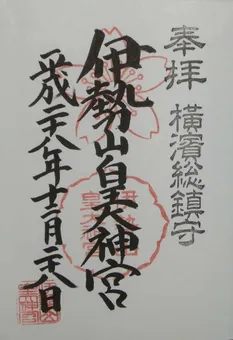 奉拝 横濱総鎮守
伊勢山皇大神宮
平成二十八年十二月二十八日